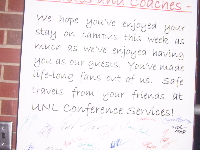 and Coaches -
We hope you've enjoyed your
stay on campus this week as
much as we've enjoyed having
you as our guests. You've made
life-long fans out of us. Safe
travels from your friends at
UNL Conference Services!